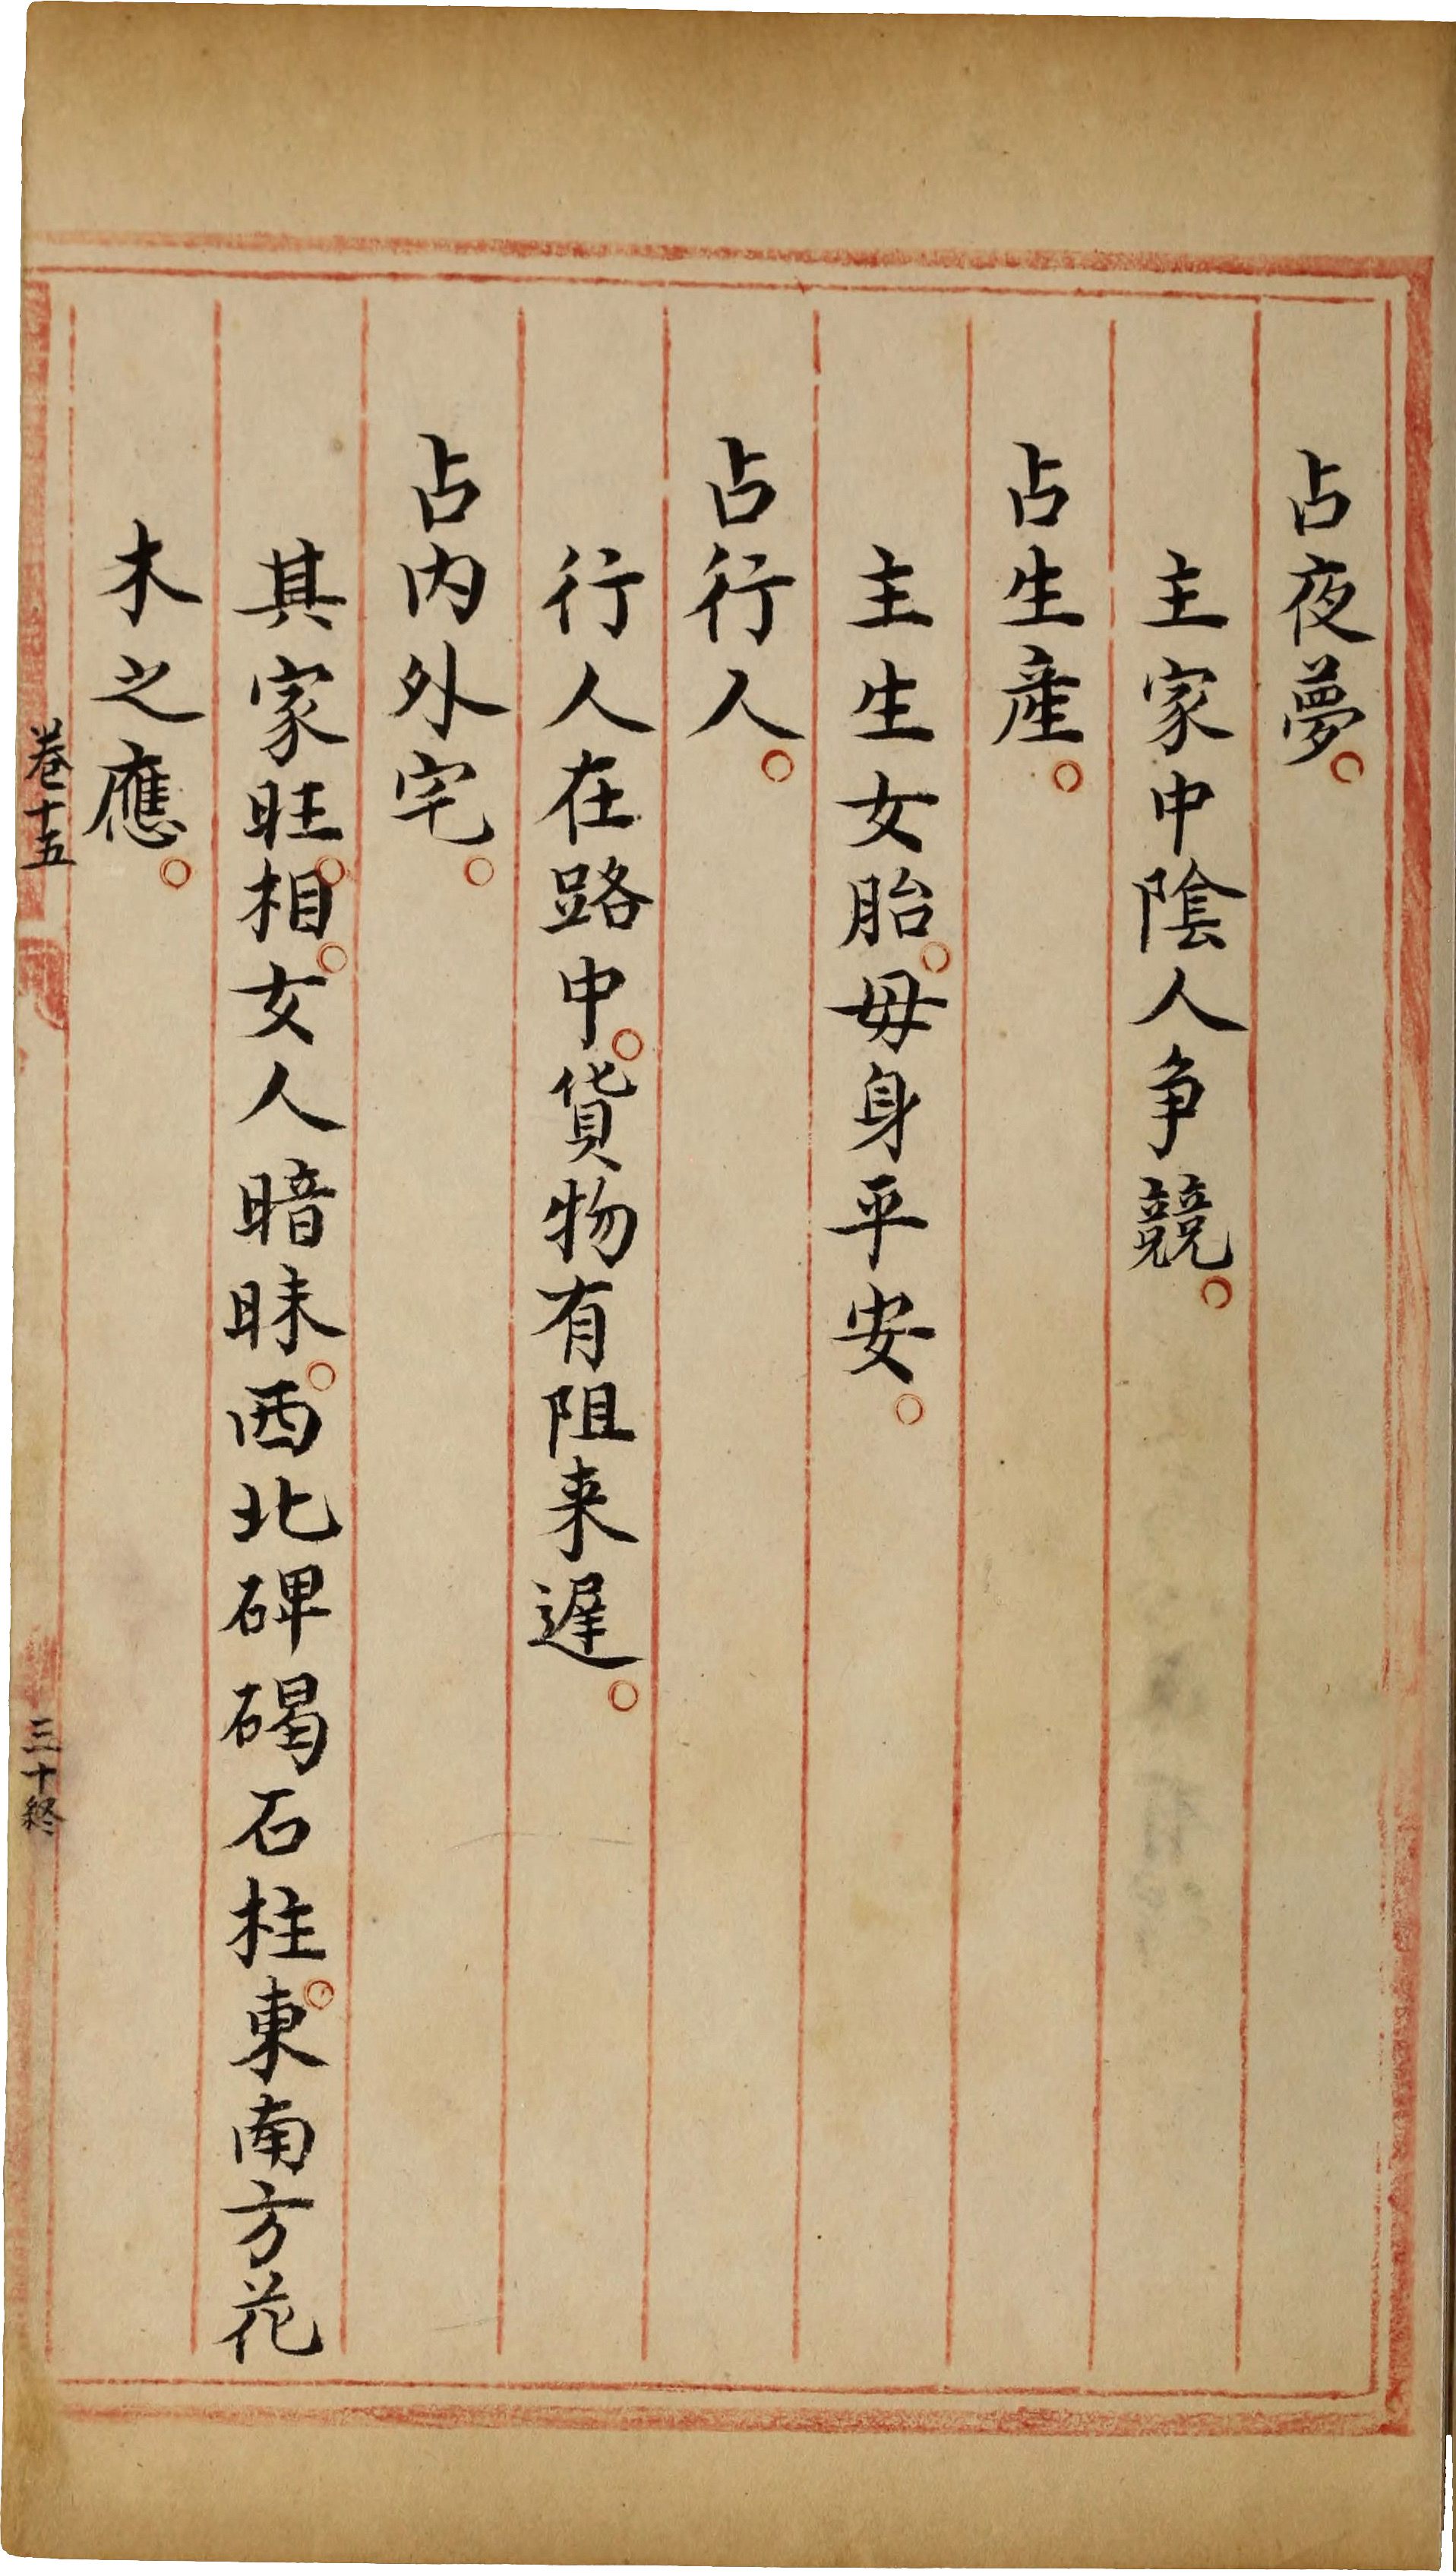 占夜夢。
主家中陰人争競。
占生産。
主生女胎。母身平安。
占行人。
行人在路中。貨物有阻来遲。
占内外宅。
其家旺。相。女人暗昧。西北碑碣石柱。東南方花
木之應。
卷十五
三十終